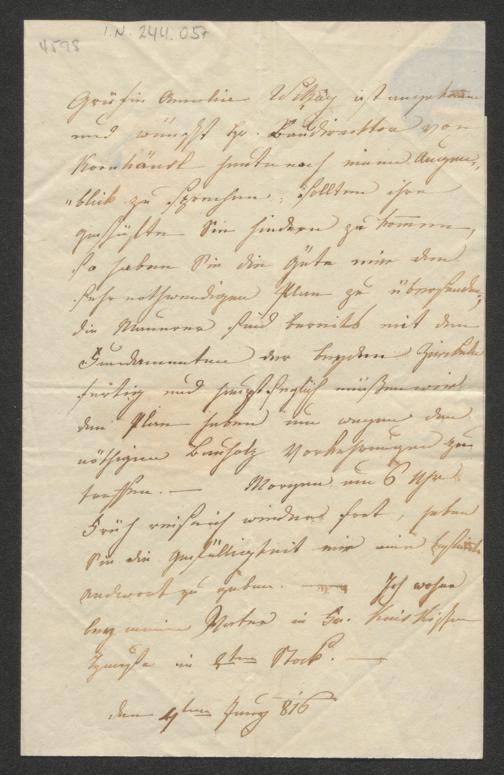 4598
I.N. 244.057
Gräfin Amalie Viczay ist angekommen
und wünscht H. Baudirecktor von
Kornhäusl heute noch einen Augen„
„blick zu sprechen; sollten ihre
geschäfte Sie hindern zu kommen,
so haben Sie die Güte mir den
sehr nothwendigen Plan zu übersenden,
die Maurer sind bereits mit den
Fundamenten der beyden
fertig und hauptsächlich müßen wir
den Plan haben um wegen den
nöthigen Bauholz Vorkehrungen zu
treffen. — Morgen um 6 Uhr
Früh reise ich wieder fort, haben
Sie die Gefälligkeit mir eine
andwort zu geben. — Ich wohne
bey meiner Mutter in
in 2ten Stock. —
den 4ten Juny 816